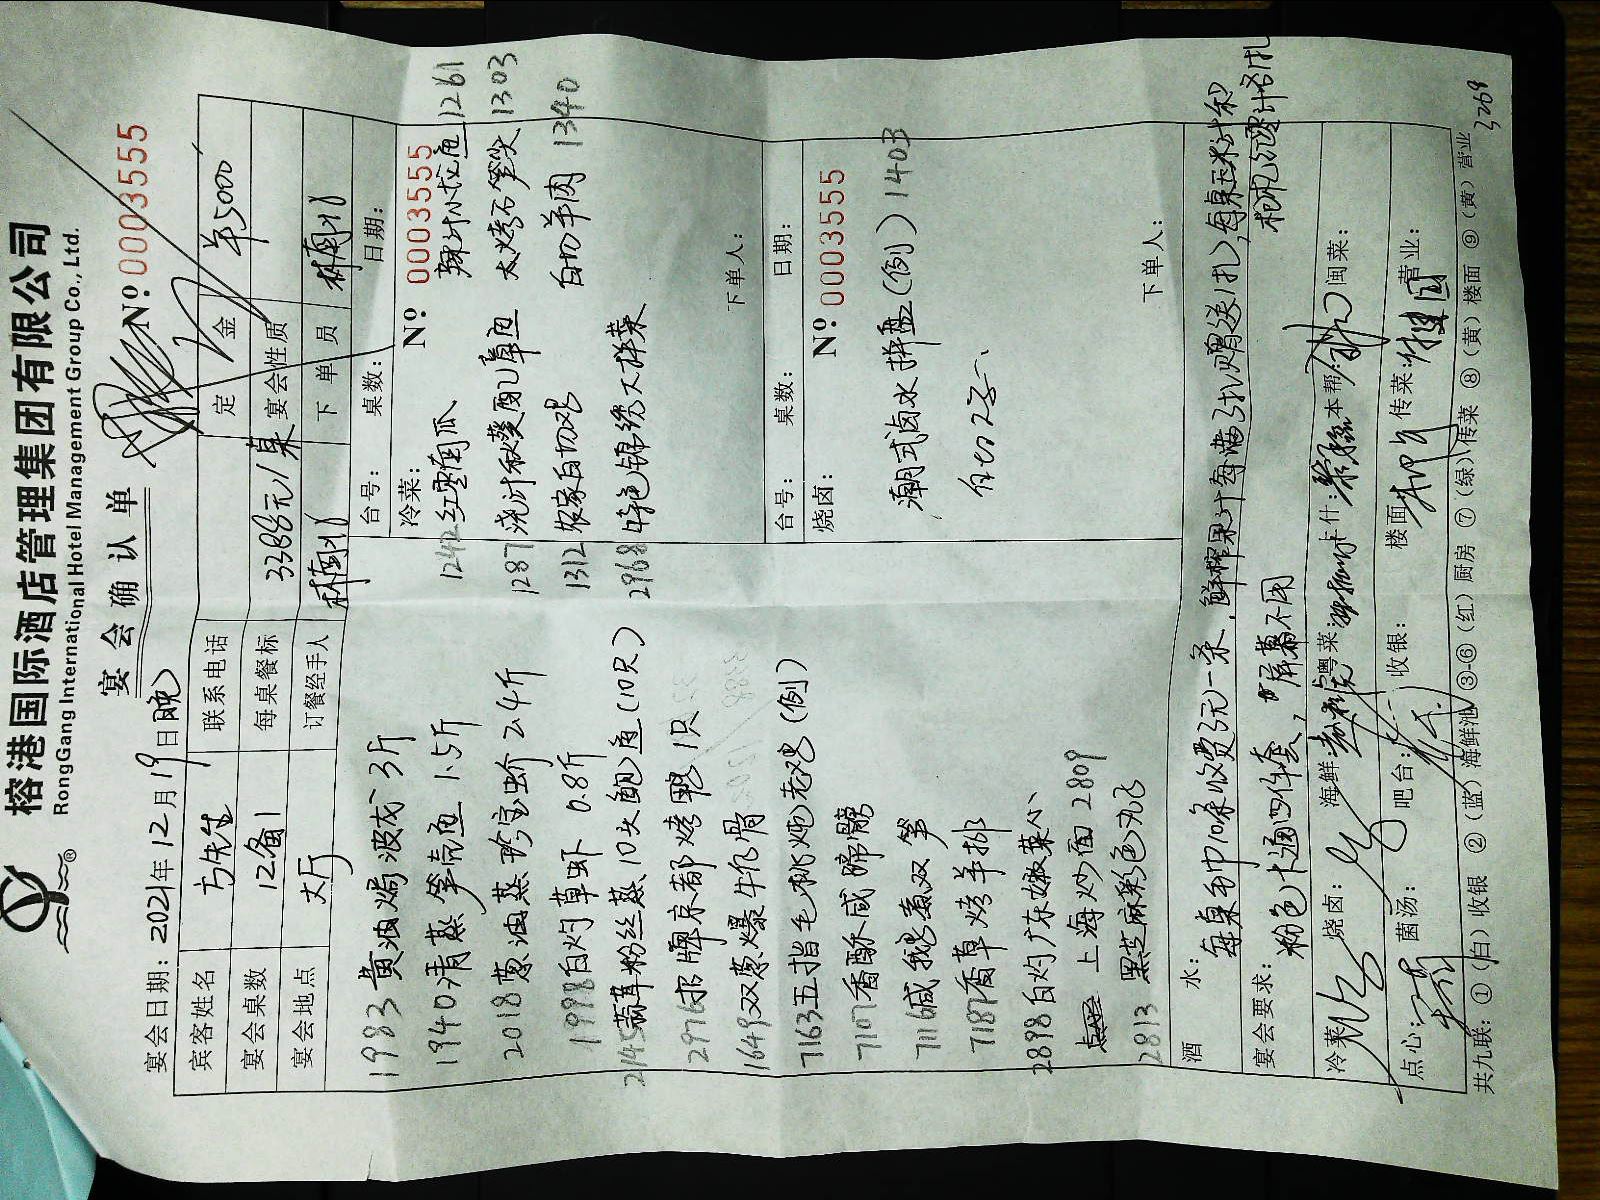 榕港国际酒店管理集团有限公司
RongGang International Hotel Management Group Co., Ltd.
宴会确认单
№ 0003555
宴会日期: 2021年12月19日晚
宾客姓名 方先生 联系电话 定金 ¥5000
宴会桌数 12备1 每桌餐标 3388元/桌 宴会性质
宴会地点 大厅 订餐经手人 下单员
台号: 桌数: 日期:
冷菜: № 0003555
1242 红枣南瓜 1261
1287 浇汁秋葵 1303
1312 农家白切鸡 白切羊肉 1340
2968 特色锦绣大拌菜
下单人:
台号: 桌数: 日期:
烧卤: № 0003555
潮式卤水拼盘(例) 1403
下单人:
1983 黄油焗波龙 3斤
1940 清蒸笋壳鱼 1.5斤
2018 葱油蒸珍宝蟹 2.4斤
1998 白灼草虾 0.8斤
2145 蒜蓉粉丝蒸10头鲍鱼(10只)
2976 招牌京都烤鸭 1只
1649 双葱爆牛乳骨
7163 五指毛桃炖老鸡(例)
7107 香酥咸蹄髈
7116 咸鹅煮双笋
7187 香草烤羊排
2898 白灼广东嫩菜心
上海炒面 2809
2813 黑芝麻彩色丸子
酒水: 每桌毛巾味收费5元一条,鲜榨果汁每满3扎赠送1扎,每桌玉米汁
宴会要求: 粉色卡通四件套,屏幕不用
冷菜: 烧卤: 海鲜: 粤菜: 卡什: 本帮: 闽菜:
点心: 菌汤: 吧台: 收银: 楼面: 传菜: 营业:
共九联: ①(白)收银 ②(蓝)海鲜池 ③-⑥(红)厨房 ⑦(绿)传菜 ⑧(黄)楼面 ⑨(黄)营业
3268